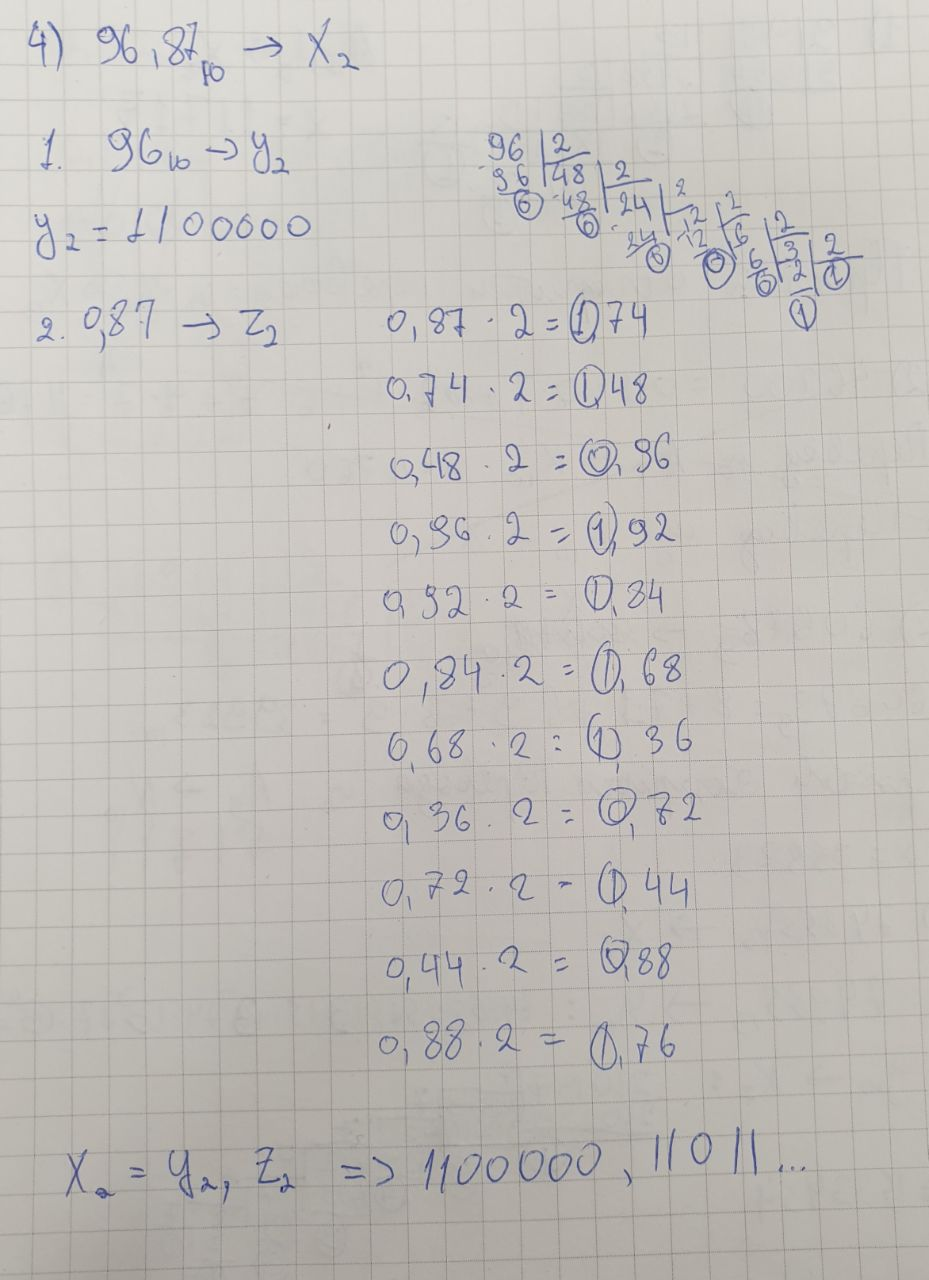 4) 96,87₁₀ → X₂
1. 96₁₀ → y₂
96 | 2
96 48 | 2
0 48 24 | 2
0 24 12 | 2
0 12 6 | 2
0 6 3 | 2
0 2 1
1
y₂ = 1100000
2. 0,87 → Z₂
0,87 · 2 = 1,74
0,74 · 2 = 1,48
0,48 · 2 = 0,96
0,96 · 2 = 1,92
0,92 · 2 = 1,84
0,84 · 2 = 1,68
0,68 · 2 = 1,36
0,36 · 2 = 0,72
0,72 · 2 = 1,44
0,44 · 2 = 0,88
0,88 · 2 = 1,76
X₂ = y₂, Z₂ => 1100000,11011...